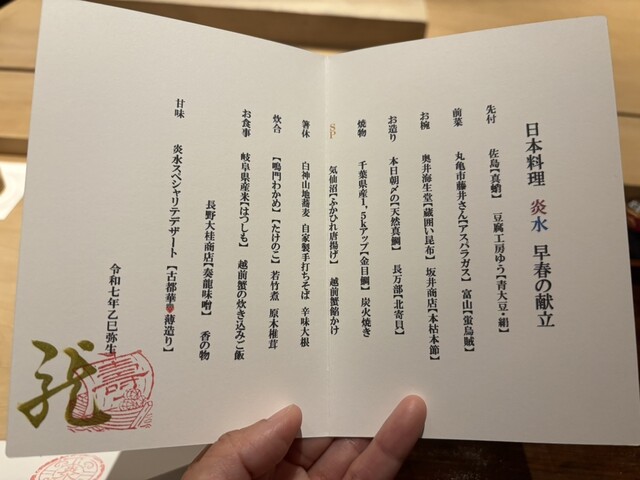 日本料理 炎水 早春の献立
先付 佐島【真蛸】 豆腐工房ゆう【青大豆・絹】
前菜 丸亀市藤井さん【アスパラガス】 富山【蛍烏賊】
お椀 奥井海生堂【蔵囲い昆布】 坂井商店【本枯本節】
お造り 本日朝〆の【天然真鯛】 長万部【北寄貝】
焼物 千葉県産1,5kアップ【金目鯛】 炭火焼き
SP 気仙沼【ふかひれ唐揚げ】 越前蟹餡かけ
箸休 白神山地蕎麦 自家製手打ちそば 辛味大根
炊合 【鳴門わかめ】【たけのこ】若竹煮 原木椎茸
お食事 岐阜県産米【はつしも】 越前蟹の炊き込みご飯
長野大桂商店【奏龍味噌】 香の物
甘味 炎水スペシャリテデザート【古都華♥薄造り】
令和七年乙巳弥生
龍
寿